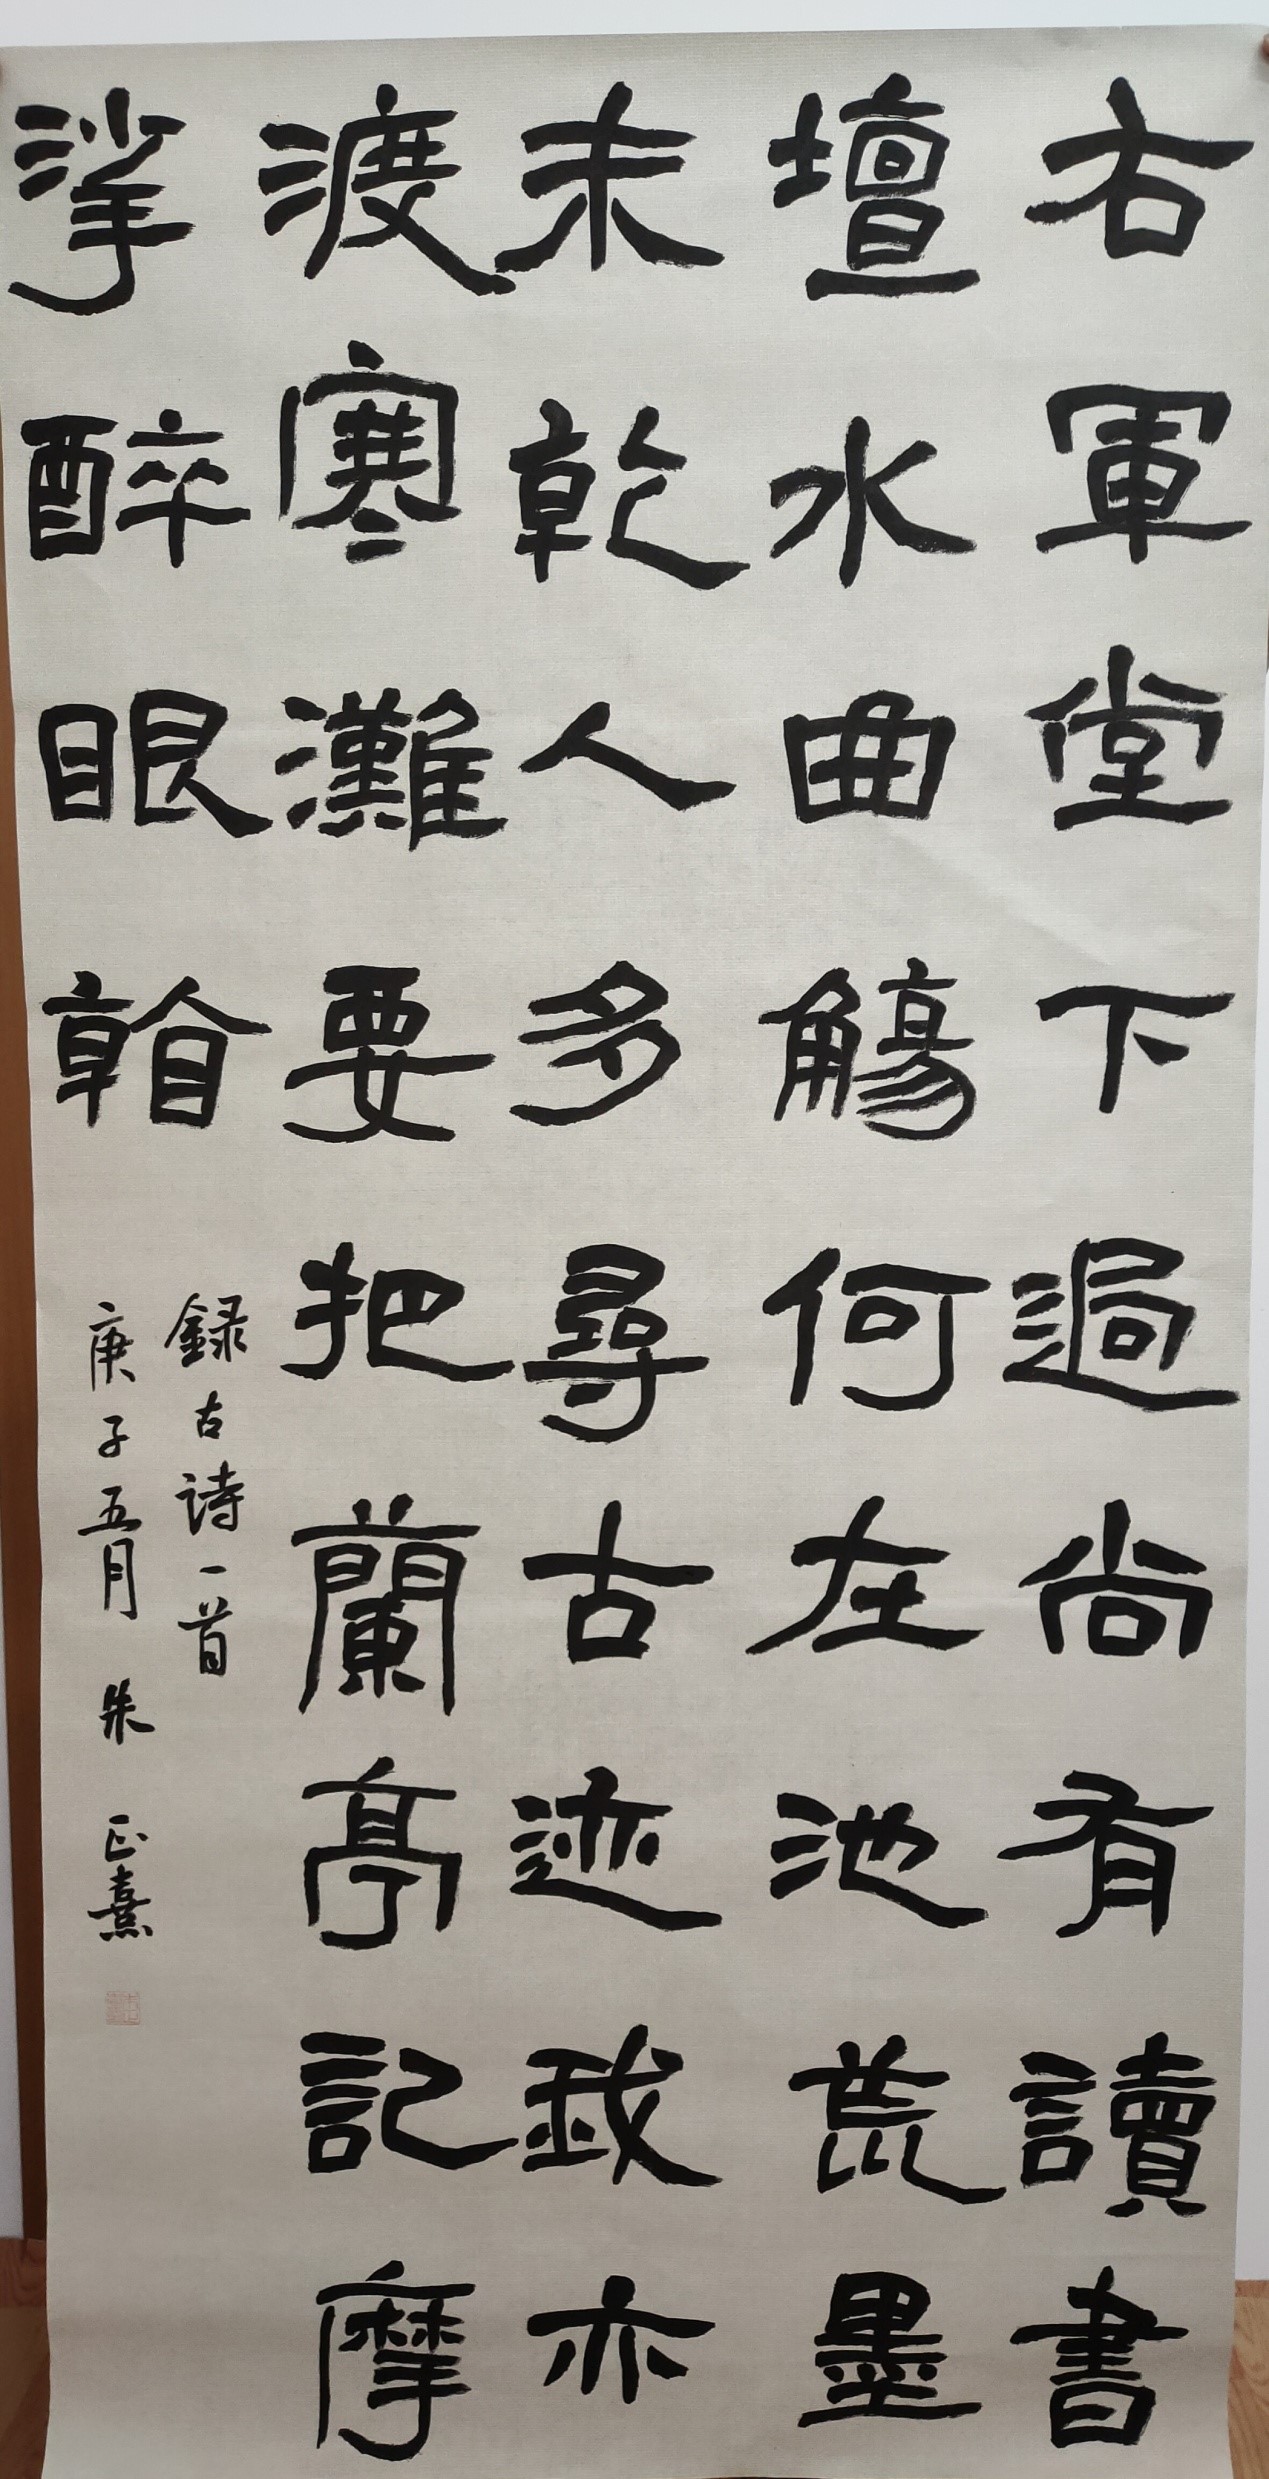 右軍堂下過尚有讀書
壇水曲觴何在池荒墨
未乾人多尋古迹我亦
渡寒灘要把蘭亭記摩
挲醉眼看
録古诗一首
庚子五月 朱正熹